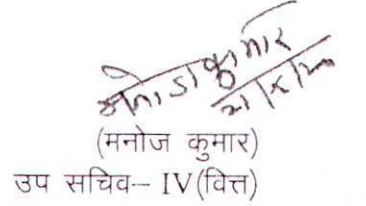 मनोज कुमार
(मनोज कुमार)
उप सचिव– IV(वित्त)